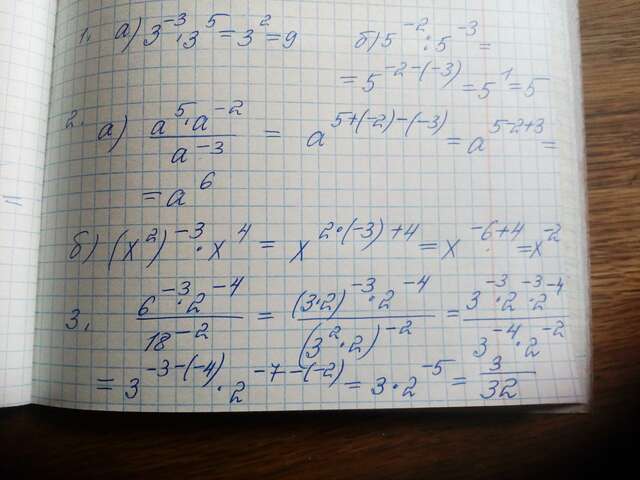 1. а) 3^{-3}·3^{5} = 3^{2} = 9 б) 5^{-2} : 5^{-3} =
= 5^{-2-(-3)} = 5^{1} = 5
2. а) \frac{a^{5}·a^{-2}}{a^{-3}} = a^{5+(-2)-(-3)} = a^{5-2+3} =
= a^{6}
б) (x^{2})^{-3}·x^{4} = x^{2·(-3)+4} = x^{-6+4} = x^{-2}
3. \frac{6^{-3}·2^{-4}}{18^{-2}} = \frac{(3·2)^{-3}·2^{-4}}{(3^{2}·2)^{-2}} = \frac{3^{-3}·2^{-3}·2^{-4}}{3^{-4}·2^{-2}}
= 3^{-3-(-4)}·2^{-7-(-2)} = 3·2^{-5} = \frac{3}{32}